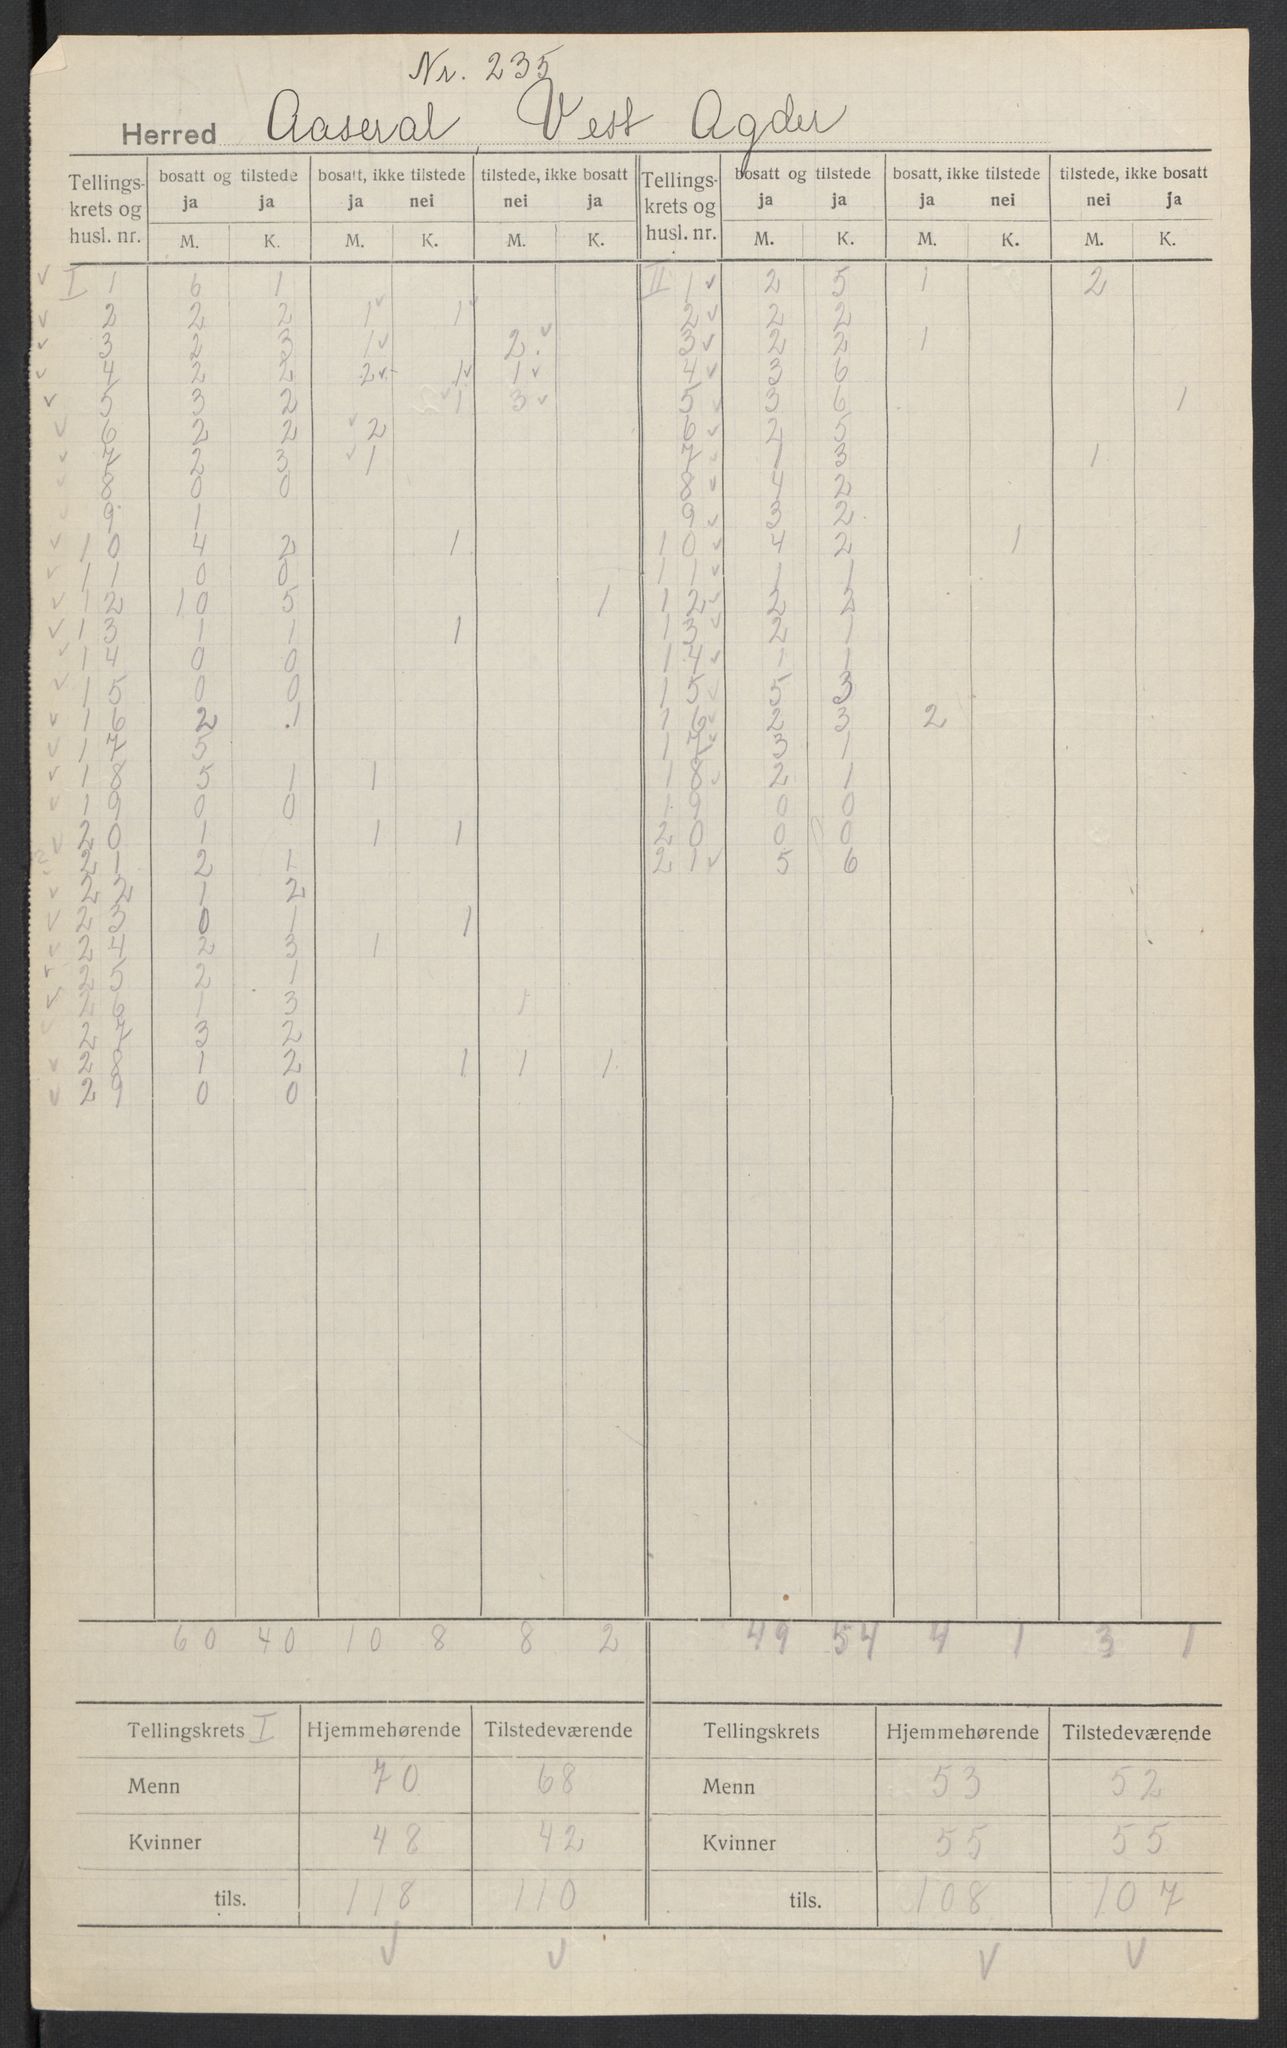 Nr. 235
Herred Aaseral, Vest Agder
Tellings- krets og husl. nr. | bosatt og tilstede | bosatt, ikke tilstede | tilstede, ikke bosatt | Tellings- krets og husl. nr. | bosatt og tilstede | bosatt, ikke tilstede | tilstede, ikke bosatt
ja ja | ja nei | nei ja | ja ja | ja nei | nei ja
M. K. | M. K. | M. K. | M. K. | M. K. | M. K.
✓ I 1 | 6 | 1 | | | | | II 1 ✓ | 2 | 5 | 1 | | 2 |
✓ 2 | 2 | 2 | 1 ✓ | 1 ✓ | | | 2 ✓ | 2 | 2 | | | |
✓ 3 | 2 | 3 | 1 ✓ | | 2 ✓ | | 3 ✓ | 2 | 2 | 1 | | |
✓ 4 | 2 | 2 | 2 ✓ | 1 ✓ | 1 ✓ | | 4 ✓ | 3 | 6 | | | |
✓ 5 | 3 | 2 | | ✓ 1 | 3 ✓ | | 5 ✓ | 3 | 6 | | | | 1
✓ 6 | 2 | 2 | ✓ 2 | | | | 6 ✓ | 2 | 5 | | | |
✓ 7 | 2 | 3 | ✓ 1 | | | | 7 ✓ | 1 | 3 | | | 1 |
✓ 8 | 0 | 0 | | | | | 8 ✓ | 4 | 2 | | | |
✓ 9 | 1 | | | | | | 9 ✓ | 3 | 2 | | | |
✓ 10 | 4 | 2 | | 1 | | | 10 ✓ | 4 | 2 | | 1 | |
✓ 11 | 0 | 0 | | | | | 11 ✓ | 1 | 1 | | | |
✓ 12 | 10 | 5 | | | | 1 | 12 ✓ | 2 | 2 | | | |
✓ 13 | 1 | 1 | | 1 | | | 13 ✓ | 2 | 1 | | | |
✓ 14 | 0 | 0 | | | | | 14 ✓ | 1 | 1 | | | |
✓ 15 | 0 | 0 | | | | | 15 ✓ | 5 | 3 | | | |
✓ 16 | 2 | 1 | | | | | 16 ✓ | 2 | 3 | 2 | | |
✓ 17 | 5 | | | | | | 17 ✓ | 3 | 1 | | | |
✓ 18 | 5 | 1 | 1 | | | | 18 ✓ | 2 | 1 | | | |
✓ 19 | 0 | 0 | | | | | 19 | 0 | 0 | | | |
✓ 20 | 1 | | 1 | 1 | | | 20 | 0 | 0 | | | |
21 | 2 | 1 | | | | | 21 ✓ | 5 | 6 | | | |
✓ 22 | 1 | 2
✓ 23 | 0 | 1 | | 1
✓ 24 | 2 | 3 | 1
✓ 25 | 2 | 1
✓ 26 | 1 | 3 | | | 1
✓ 27 | 3 | 2
✓ 28 | 1 | 2 | | 1 | 1 | 1
✓ 29 | 0 | 0
60 | 40 | 10 | 8 | 8 | 2 | | 49 | 54 | 4 | 1 | 3 | 1
Tellingskrets I | Hjemmehørende | Tilstedeværende | Tellingskrets | Hjemmehørende | Tilstedeværende
Menn | 70 | 68 | Menn | 53 | 52
Kvinner | 48 | 42 | Kvinner | 55 | 55
tils. | 118 | 110 | tils. | 108 | 107
✓ ✓ ✓ ✓